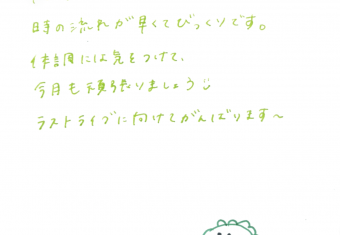 時の流れが早くてびっくりです。
体調には気をつけて、
今月も頑張りましょう☺
ラストライブに向けてがんばります〜